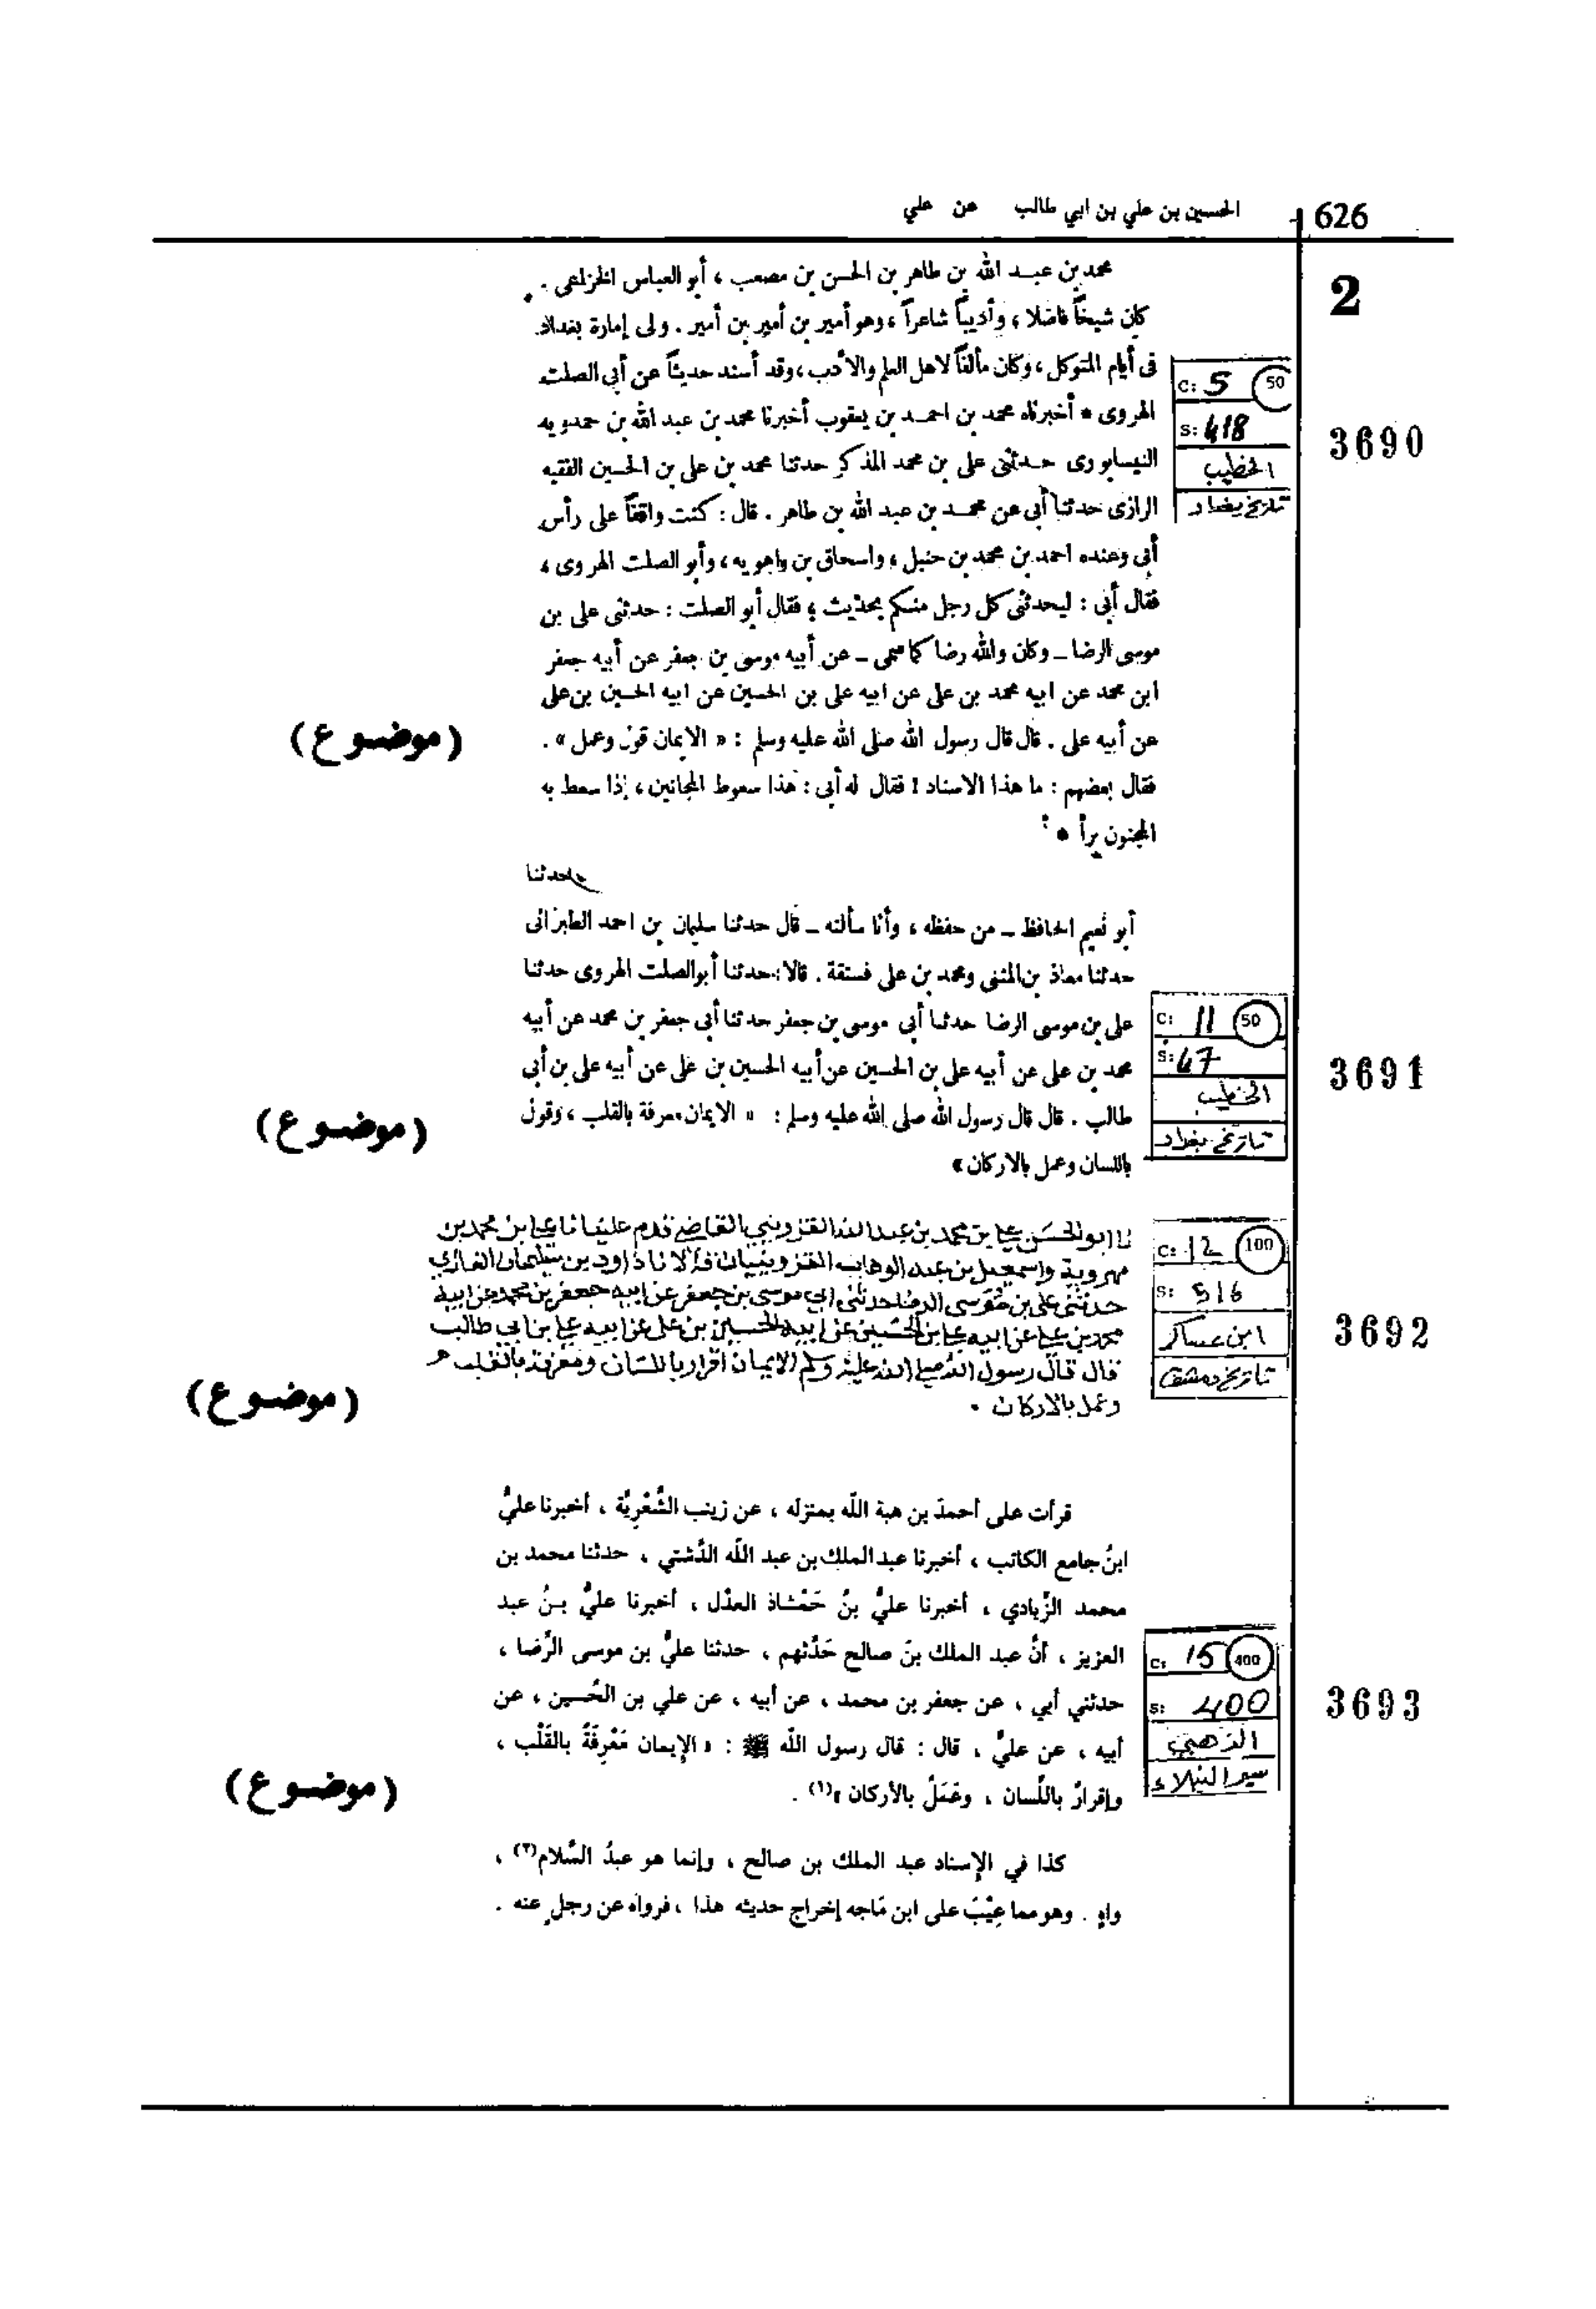 626
الحسين بن علي بن ابي طالب عن علي
2
محمد بن عبد الله بن طاهر بن الحسن بن مصعب ، أبو العباس الخزاعى .
كان شيخاً فاضلا ، وأديباً شاعراً ، وهو أمير بن أمير بن أمير . ولى إمارة بغداد
فى أيام المتوكل ، وكان مألفاً لاهل العلم والأدب ، وقد أسند حديثاً عن أبى الصلت
الهروى * أخبرناه محمد بن احمد بن يعقوب أخبرنا محمد بن عبد الله بن حمدويه
النيسابورى حدثنى على بن محمد المذكر حدثنا محمد بن على بن الحسين الفقيه
الرازى حدثنا أبى عن محمد بن عبد الله بن طاهر . قال : كنت واقفاً على رأس
أبى وعنده احمد بن محمد بن حنبل ، واسحاق بن راهويه ، وأبو الصلت الهروى ،
فقال أبى : ليحدثنى كل رجل منكم بحديث ، فقال أبو الصلت : حدثنى على بن
موسى الرضا ـ وكان والله رضا كما سمى ـ عن أبيه موسى بن جعفر عن أبيه جعفر
ابن محمد عن ابيه محمد بن على عن ابيه على بن الحسين عن ابيه الحسين بن على
عن أبيه على . قال قال رسول الله صلى الله عليه وسلم : « الايمان قول وعمل » .
فقال بعضهم : ما هذا الاسناد ! فقال له أبى : هذا سعوط المجانين ، إذا سعط به
المجنون برأ *
C: 5 50
S: 418
الخطيب
تاريخ بغداد
3690
(موضوع)
حدثنا
أبو نعيم الحافظ ـ من حفظه ، وأنا سألته ـ قال حدثنا سليمان بن احمد الطبرانى
حدثنا معاذ بن المثنى ومحمد بن على فستقة . قالا : حدثنا أبو الصلت الهروى حدثنا
على بن موسى الرضا حدثنا أبى موسى بن جعفر حدثنا أبى جعفر بن محمد عن أبيه
محمد بن على عن أبيه على بن الحسين عن أبيه الحسين بن على عن أبيه على بن أبى
طالب . قال قال رسول الله صلى الله عليه وسلم : « الايمان معرفة بالقلب ، وقول
باللسان وعمل بالاركان »
C: 11 50
S: 47
الخطيب
تاريخ بغداد
3691
(موضوع)
ابو الحسن علي بن محمد بن عبد الله القزويني القاضي قدم علينا نا علي بن محمد بن
مهروية واسمعيل بن عبد الوهاب القزوينيان قالا نا داود بن سليمان الغازي
حدثني علي بن موسى الرضا حدثني ابي موسى بن جعفر عن ابيه جعفر بن محمد عن ابيه
محمد بن علي عن ابيه علي بن الحسين عن ابيه الحسين بن علي عن ابيه علي بن ابي طالب
قال قال رسول الله صلى الله عليه وسلم الايمان اقرار باللسان ومعرفة بالقلب
وعمل بالاركان .
C: 12 100
S: 516
ابن عساكر
تاريخ دمشق
3692
(موضوع)
قرأت على أحمدَ بن هبة الله بمنزله ، عن زينب الشَّعْرِيَّة ، أخبرنا عليُّ
ابنُ جامع الكاتب ، أخبرنا عبد الملك بن عبد الله الدَّشتي ، حدثنا محمد بن
محمد الزِّيادي ، أخبرنا عليُّ بنُ حَمْشاذ العدْل ، أخبرنا عليُّ بنُ عبد
العزيز ، أنَّ عبد الملك بنَ صالح حَدَّثهم ، حدثنا عليُّ بن موسى الرِّضا ،
حدثني أبي ، عن جعفر بن محمد ، عن أبيه ، عن علي بن الحُسين ، عن
أبيه ، عن عليٍّ ، قال : قال رسول الله ﷺ : « الإيمان مَعْرِفَةٌ بالقَلْب ،
وإقرارٌ باللِّسان ، وعَمَلٌ بالأركان »(١) .
كذا في الإسناد عبد الملك بن صالح ، وإنما هو عبدُ السَّلام(٢) ،
واهٍ . وهو مما عِيْبَ على ابن مَاجه إخراج حديثه هذا ، فرواه عن رجلٍ عنه .
C: 15 400
S: 400
الذهبي
سير النبلاء
3693
(موضوع)